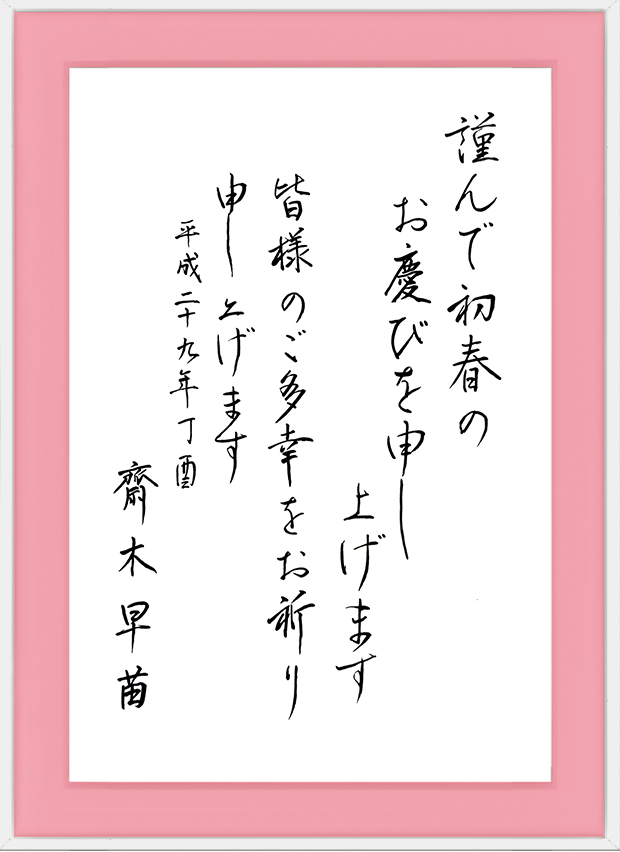 謹んで初春の
お慶びを申し
上げます
皆様のご多幸をお祈り
申し上げます
平成二十九年丁酉
齋木早苗